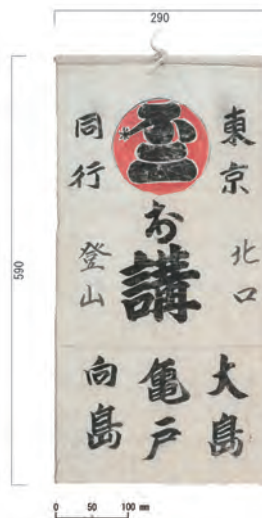 290
590
東京
北口
お講
同行
登山
大島
亀戸
向島
0 50 100 mm